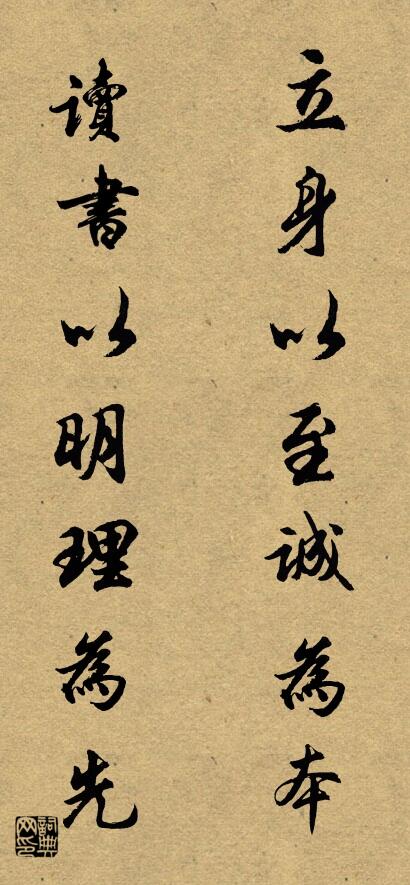 立身以至誠為本
讀書以明理為先
詞典網印